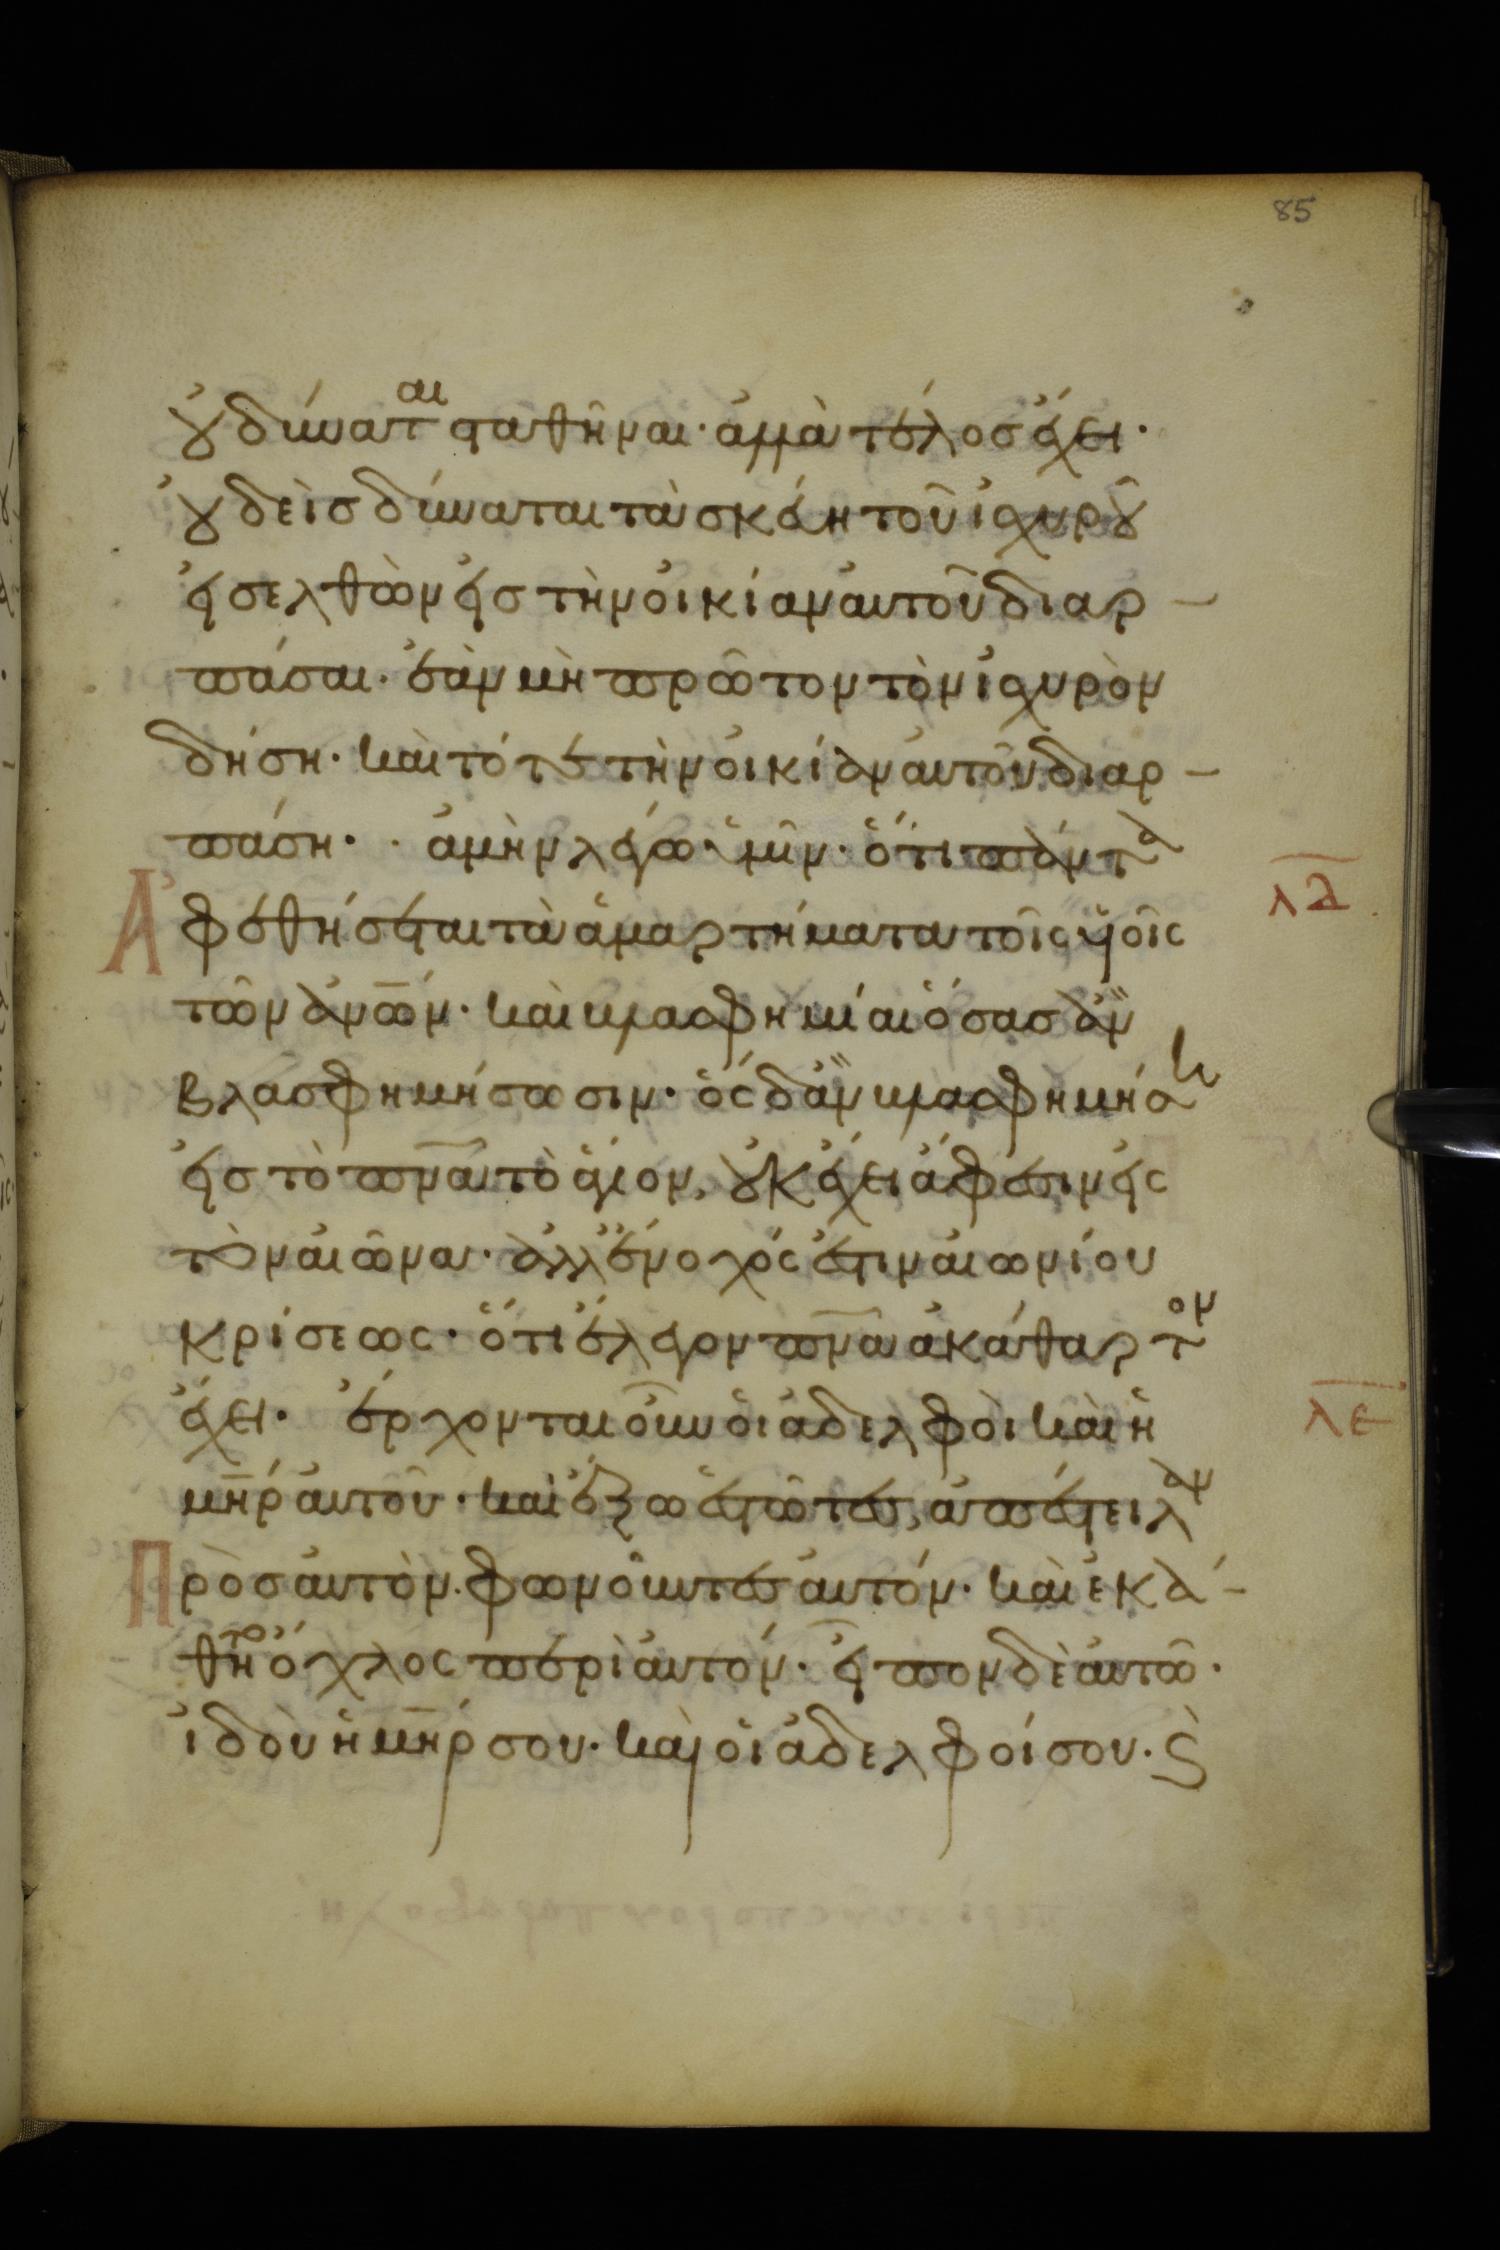 85
οὐ δύναται σταθῆναι· ἀλλὰ τέλος ἔχει·
οὐδεὶς δύναται τὰ σκεύη τοῦ ἰσχυροῦ
εἰσελθὼν εἰς τὴν οἰκίαν αὐτοῦ διαρ–
πάσαι· ἐὰν μὴ πρῶτον τὸν ἰσχυρὸν
δήση· καὶ τότε τὴν οἰκίαν αὐτοῦ διαρ–
πάση·· ἀμὴν λέγω ὑμῖν· ὅτι πάντα
Ἀφεθήσεται τὰ ἁμαρτήματα τοῖς υἱοῖς
τῶν ἀνῶν· καὶ βλασφημίαι ὅσας ἂν
βλασφημήσωσιν· ὃς δ ἂν βλασφημήση
εἰς τὸ πνα τὸ ἅγιον, οὐκ ἔχει ἄφεσιν εἰς
τὸν αἰῶνα· ἀλλ ἔνοχός ἐστιν αἰωνίου
κρίσεως· ὅτι ἔλεγον πνα ἀκάθαρτον
ἔχει· ἔρχονται οὖν οἱ ἀδελφοὶ καὶ ἡ
μηρ αὐτοῦ· καὶ ἔξω ἑστῶτες, ἀπέστειλαν
Πρὸς αὐτὸν· φωνοῦντες αὐτόν· καὶ ἐκά–
θητο ὄχλος περὶ αὐτόν· εἶπον δὲ αὐτῶ·
ἰδοὺ ἡ μηρ σου· καὶ οἱ ἀδελφοί σου· ϛ̀
λδ
λε